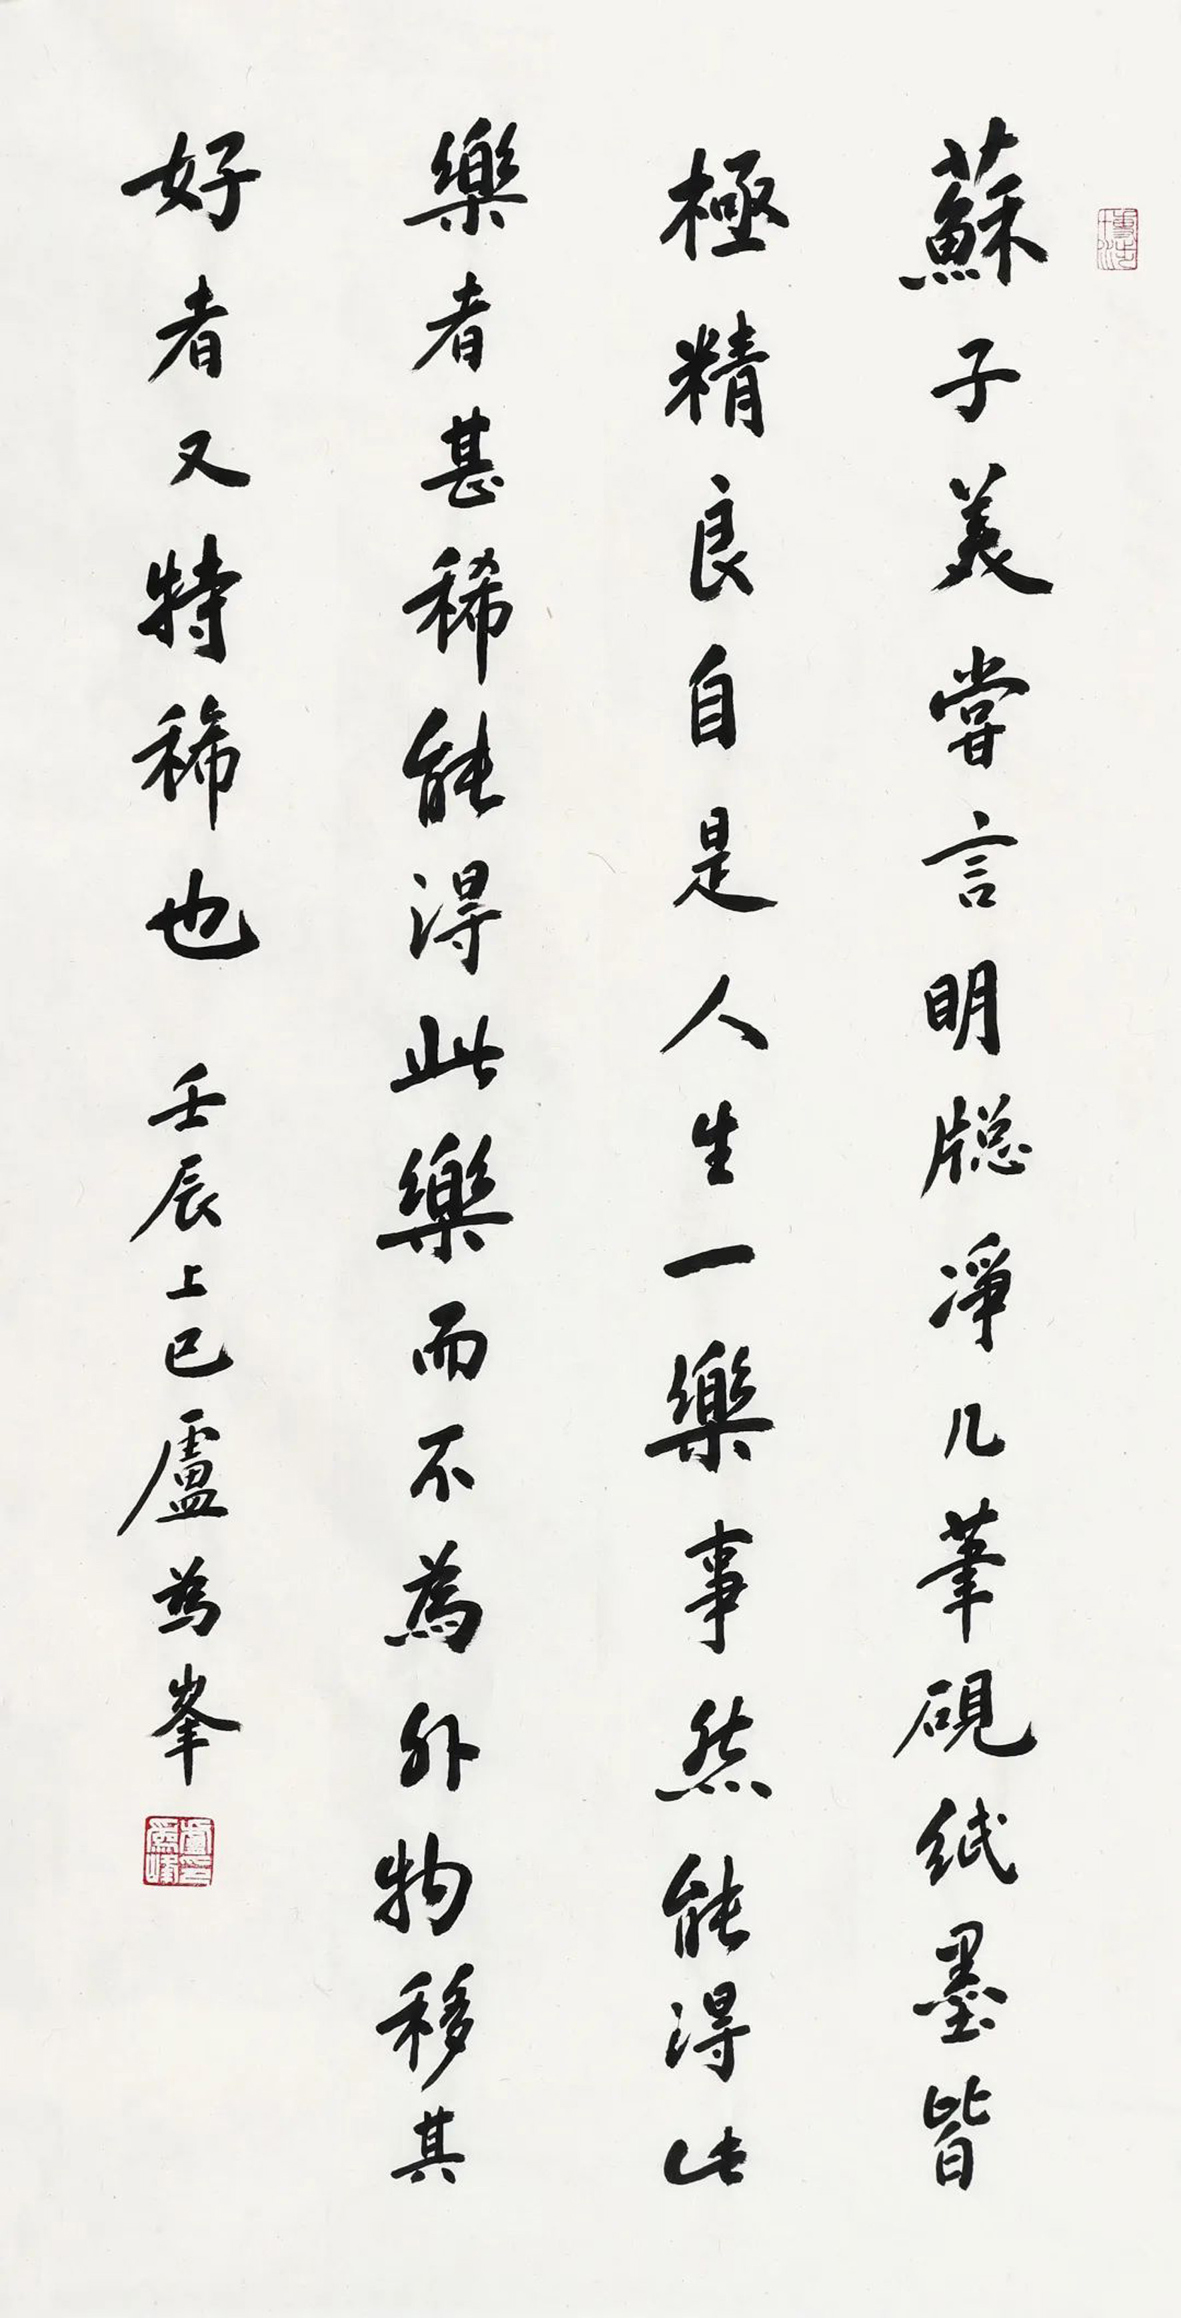 蘇子美嘗言明牕凈几筆硯紙墨皆
極精良自是人生一樂事然能得此
樂者甚稀能得此樂而不為外物移其
好者又特稀也
壬辰上巳盧為峯